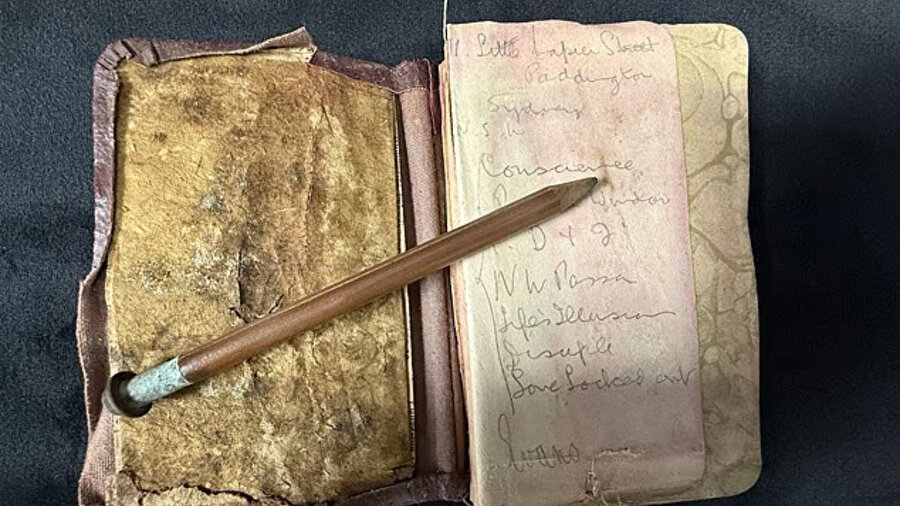 Little Napier Street
Paddington
Sydney
N S W
Conscience
Window
D & J
N W Passa
Life's Illusion
Disciple
Love Locked out
Evans